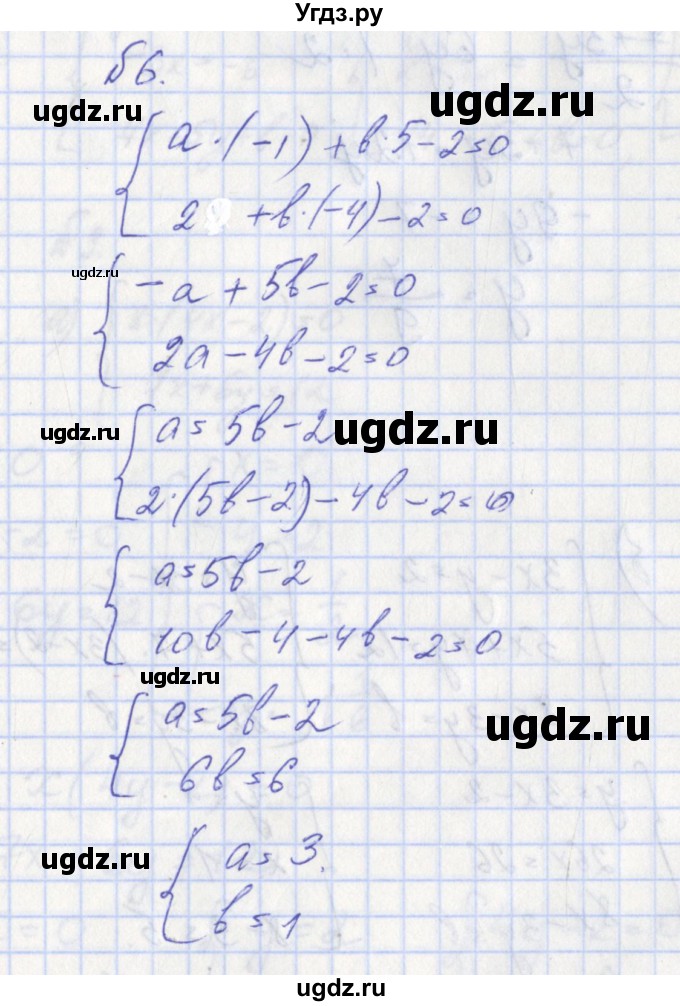 Угдз.ру
№6.
ugdz.ru ugdz.ru
a·(-1)+b·5-2=0
2 +b·(-4)-2=0
ugdz.ru
-a+5b-2=0
2a-4b-2=0
ugdz.ru
a=5b-2
ugdz.ru
2·(5b-2)-4b-2=0
a=5b-2
10b-4-4b-2=0
ugdz.ru
a=5b-2
ugdz.ru
6b=6
ugdz.ru
a=3.
b=1
ugdz.ru